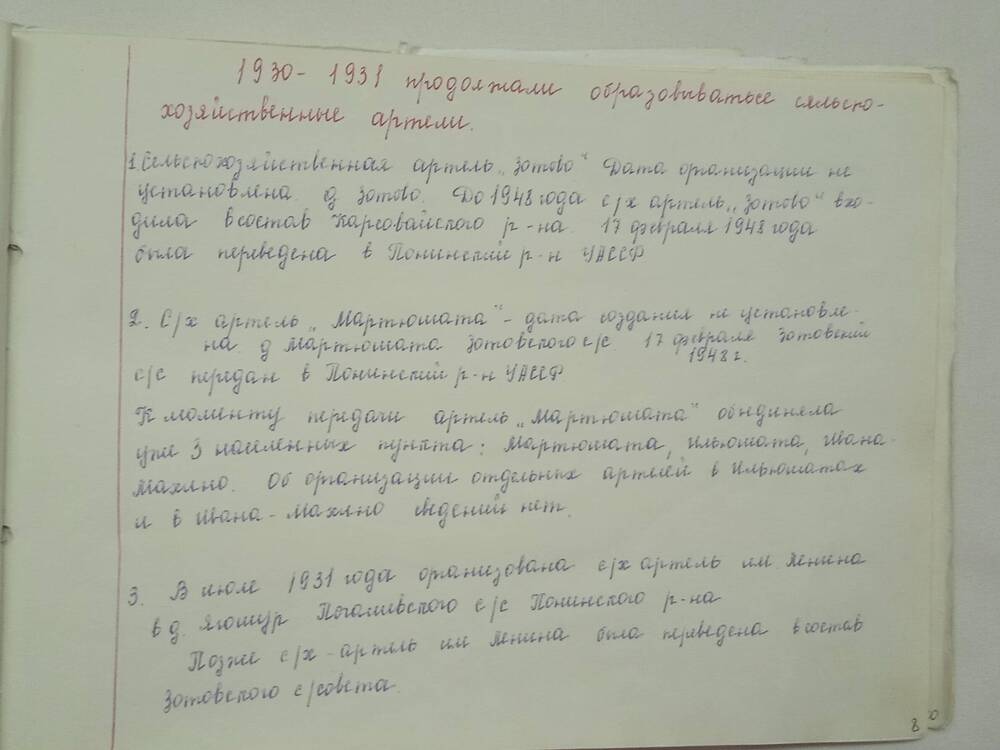 1930- 1931 продолжали образовываться сельско-
хозяйственные артели.
1. Сельскохозяйственная артель „Зотово" Дата организации не
установлена. д Зотово. До 1948 года с/х артель „Зотово" вхо-
дила в состав Карсовайского р-на. 17 февраля 1948 года
была переведена в Понинский р-н УАССР
2. С/х артель „Мартюшата" - дата создания не установле-
на. д Мартюшата Зотовского с/с 17 февраля Зотовский
1948 г.
с/с передан в Понинский р-н УАССР
К моменту передачи артель „Мартюшата" объединяла
уже 3 населенных пункта: Мартюшата, Ильюшата, Ивана-
Махляно. Об организации отдельных артелей в Ильюшатах
и в Ивана-Махляно сведений нет.
3. В июле 1931 года организована с/х артель им. Ленина
в д. Ягошур Понинского р-на
Позже с/х-артель им Ленина была переведена в состав
Зотовского с/совета.
8